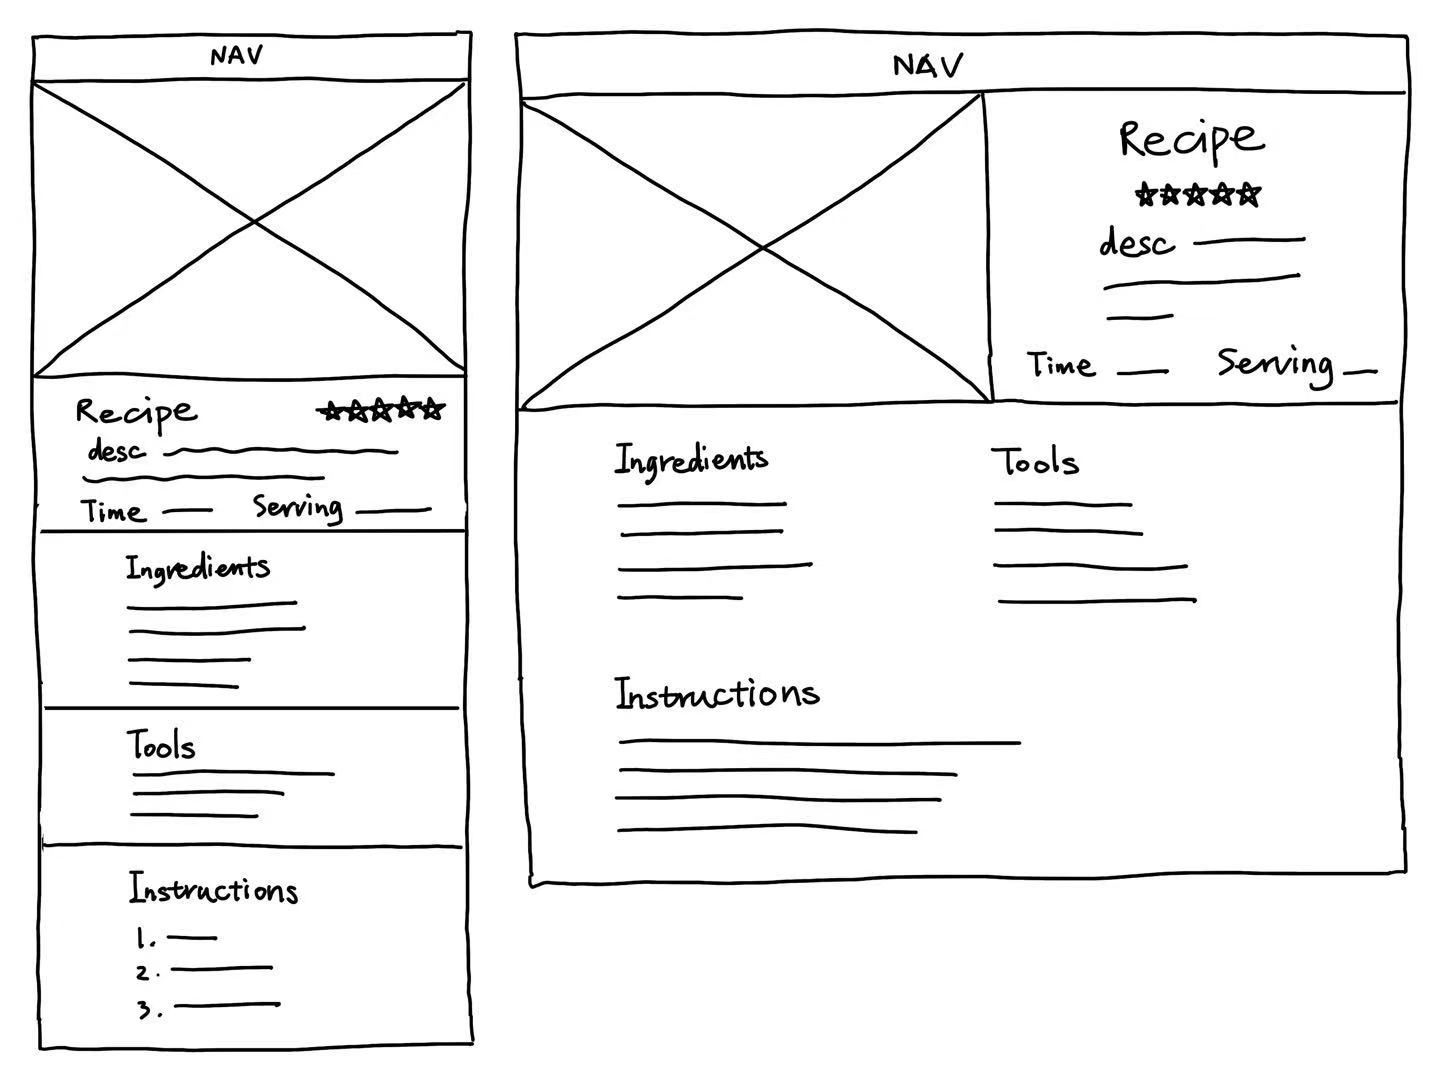 NAV
Recipe ★★★★★
desc
Time Serving
Ingredients
Tools
Instructions
1.
2.
3.
NAV
Recipe
★★★★★
desc
Time Serving
Ingredients Tools
Instructions